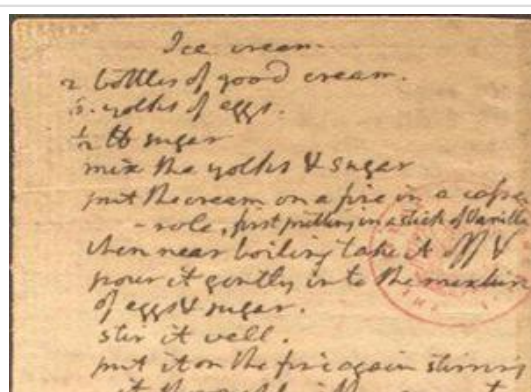 Ice cream.
2 bottles of good cream.
6. yolks of eggs.
1/2 lb sugar
mix the yolks & sugar
put the cream on a fire in a casse
- role, first putting in a stick of Vanilla
when near boiling take it off &
pour it gently into the mixture
of eggs & sugar.
stir it well.
put it on the fire again stirring